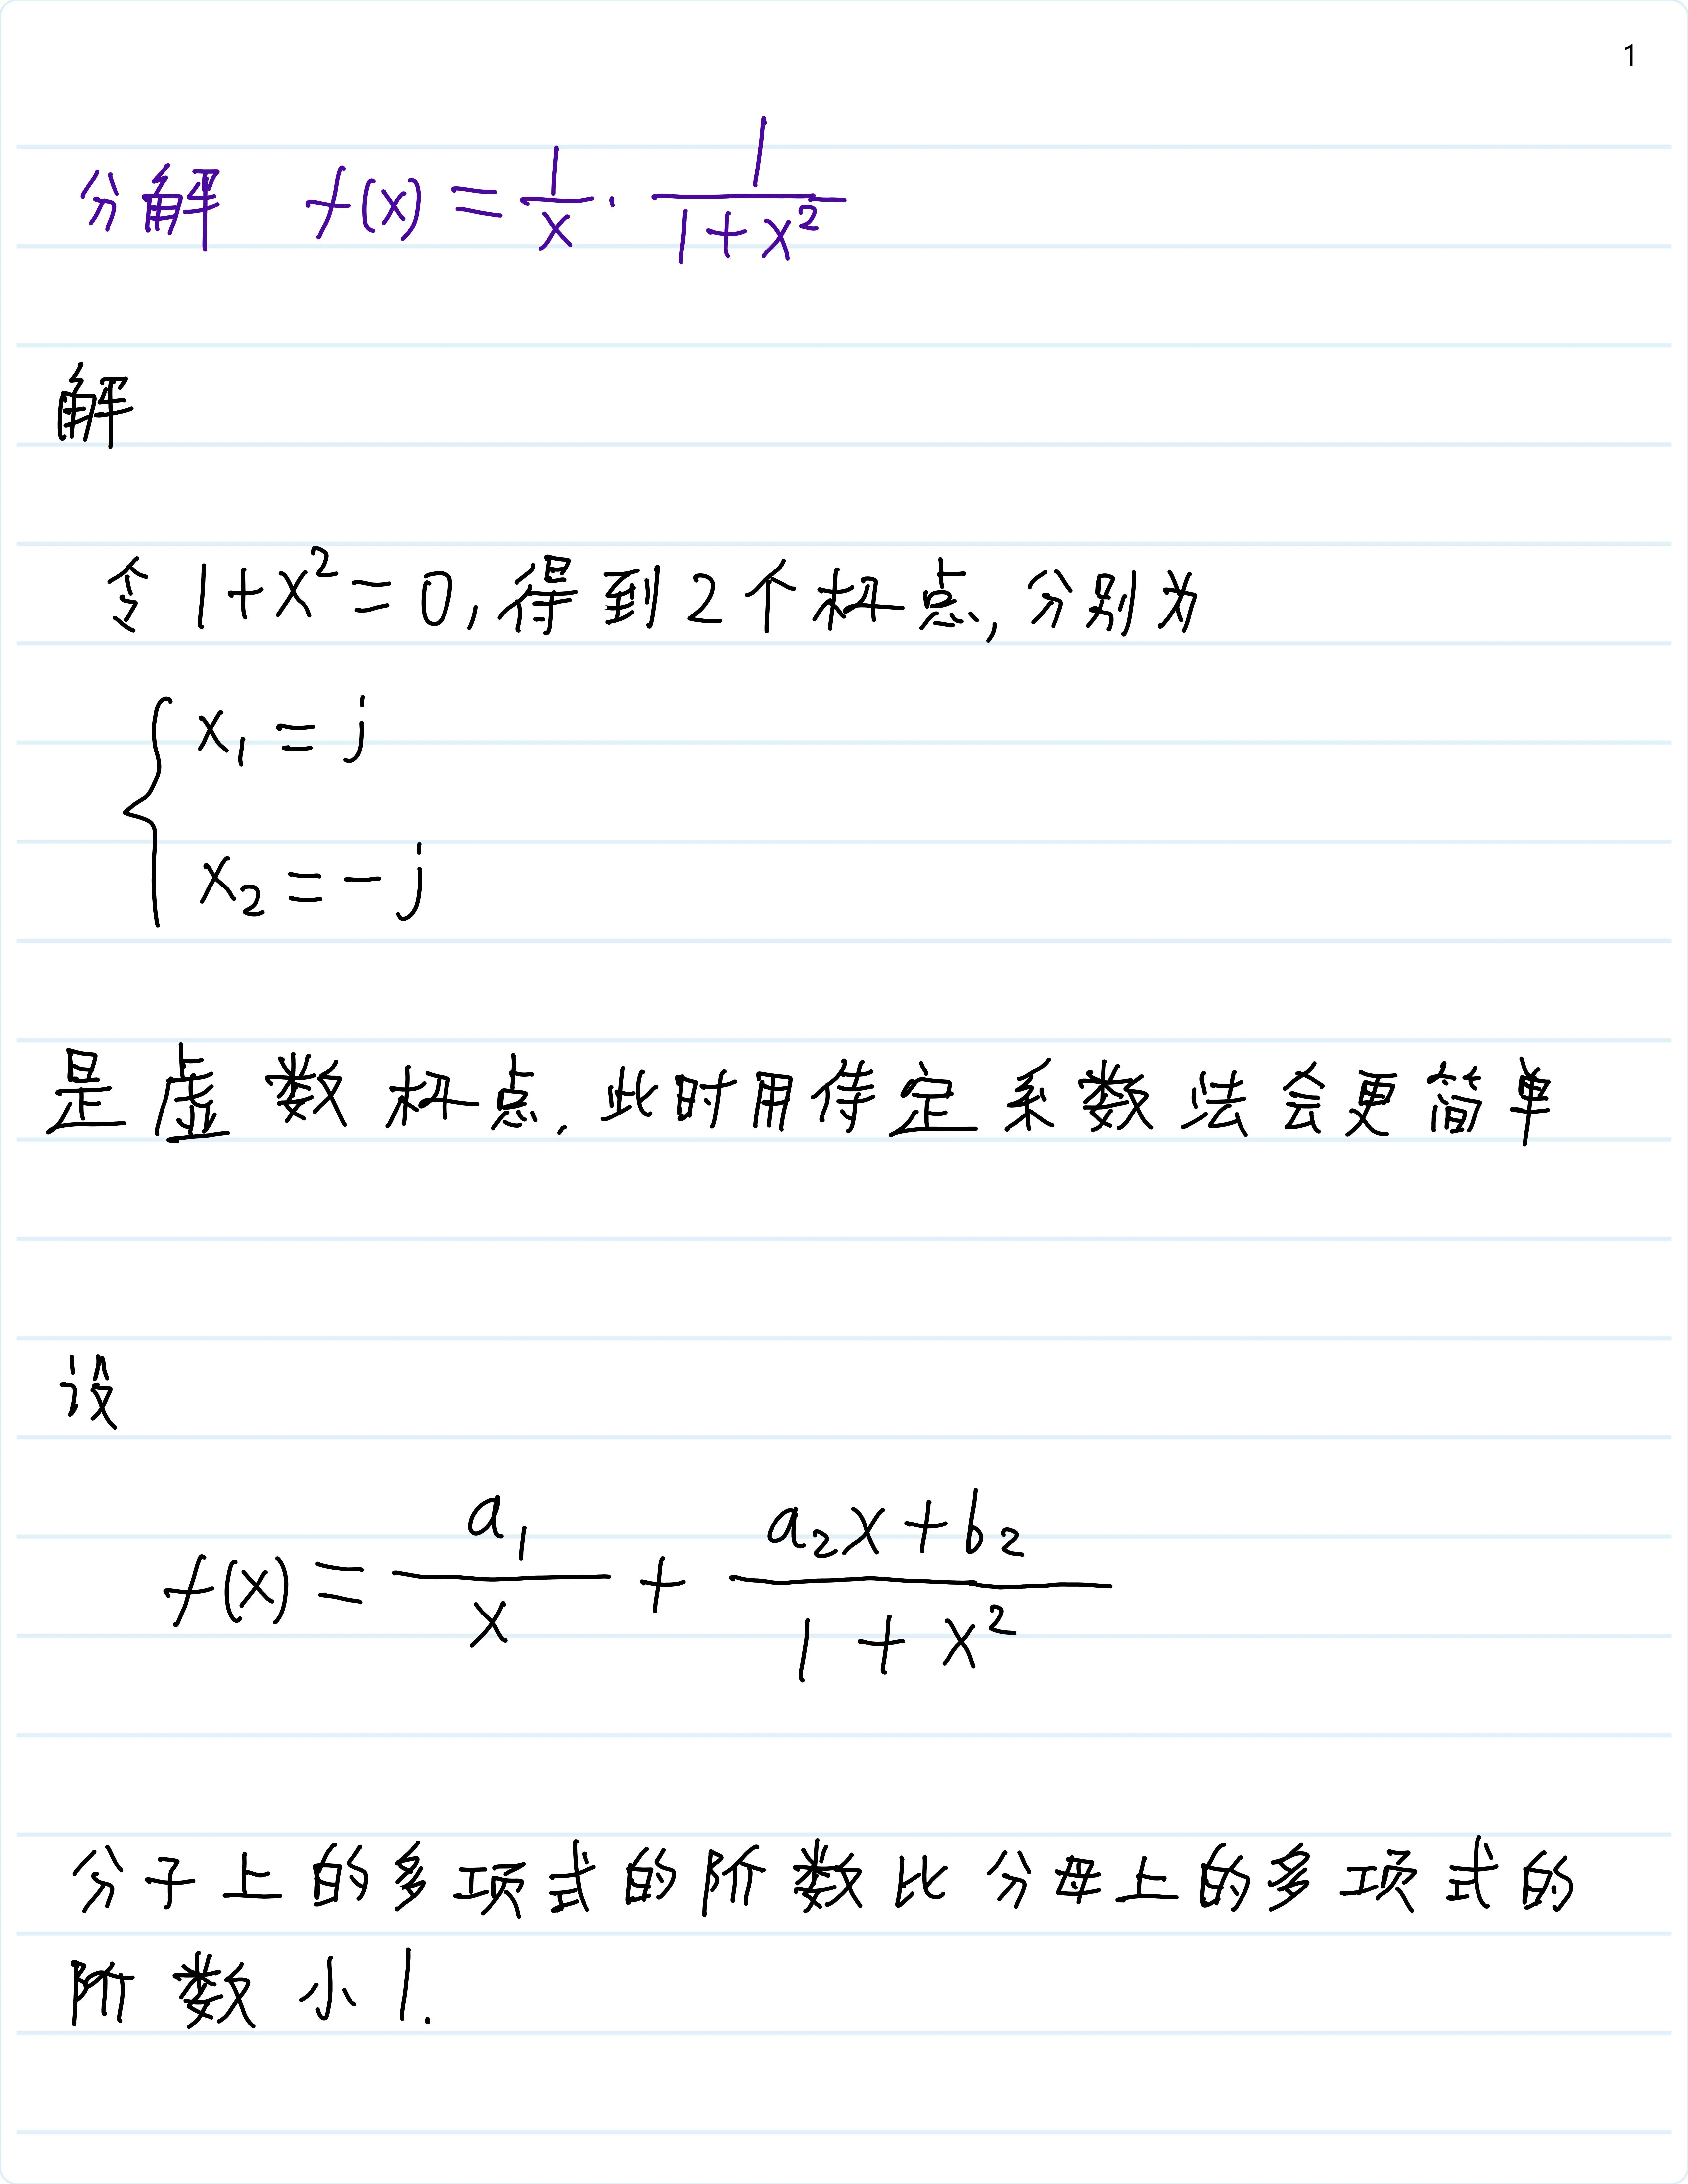 1
分解 f(x) = 1/x · 1/(1+x²)
解
令 1+x²=0, 得到2个极点, 分别为
{ x₁ = j
x₂ = -j
是虚数极点, 此时用待定系数法会更简单
设
f(x) = a₁/x + (a₂x+b₂)/(1+x²)
分子上的多项式的阶数比分母上的多项式的
阶数小1.